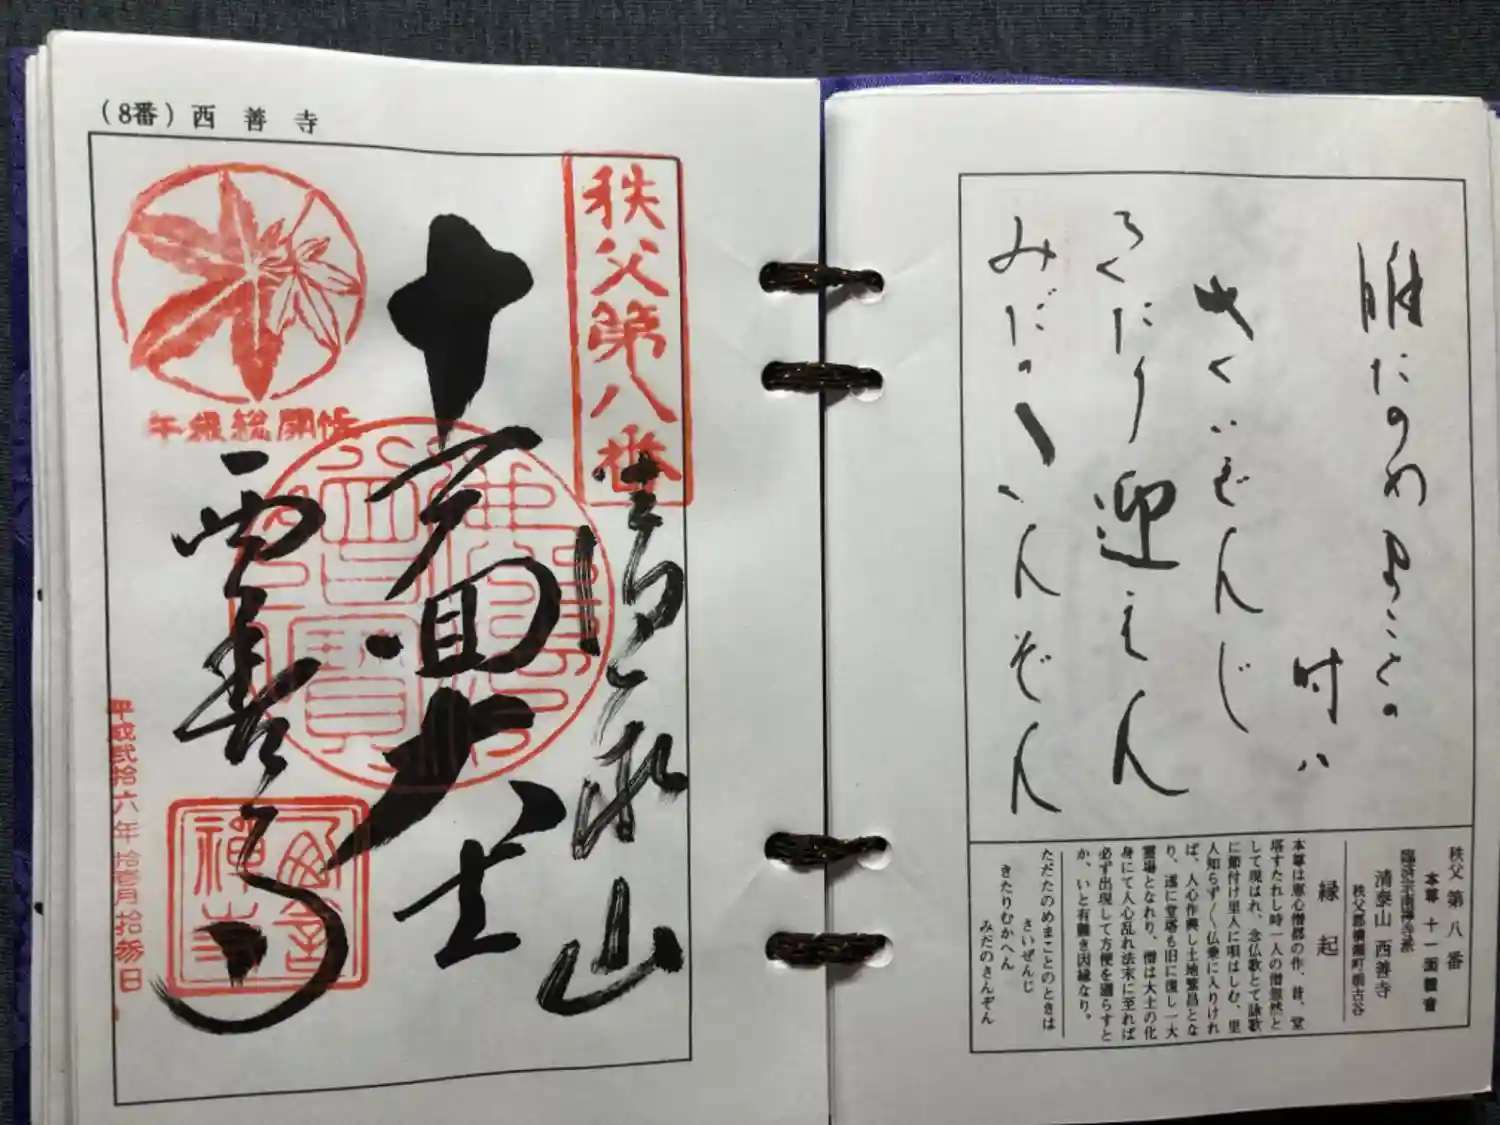 (8番) 西善寺
秩父第八番
清泰山
十一面大士
西善寺
午歳総開帳
平成弐拾六年拾壱月拾参日
たのめまことの
時ハ
さいぜんじ
きたり迎えん
みだの
さんぞん
秩父第八番
本尊 十一面観音
臨済宗南禅寺派
清泰山 西善寺
秩父郡横瀬町根古谷
縁起
本尊は恵心僧都の作、昔、堂
塔すたれし時一人の僧忽然と
して現はれ、念仏歌とて詠歌
に節付け里人に唄はしむ、里
人知らず〱仏乗に入りけれ
ば、人心作興し土地繁昌とな
り、遂に堂塔も旧に復し一大
霊場となれり、僧は大士の化
身にて人心乱れ法末に至れば
必ず出現して方便を廻らすと
か、いと有難き因縁なり。
ただたのめまことのときは
さいぜんじ
きたりむかへん
みだのさんぞん